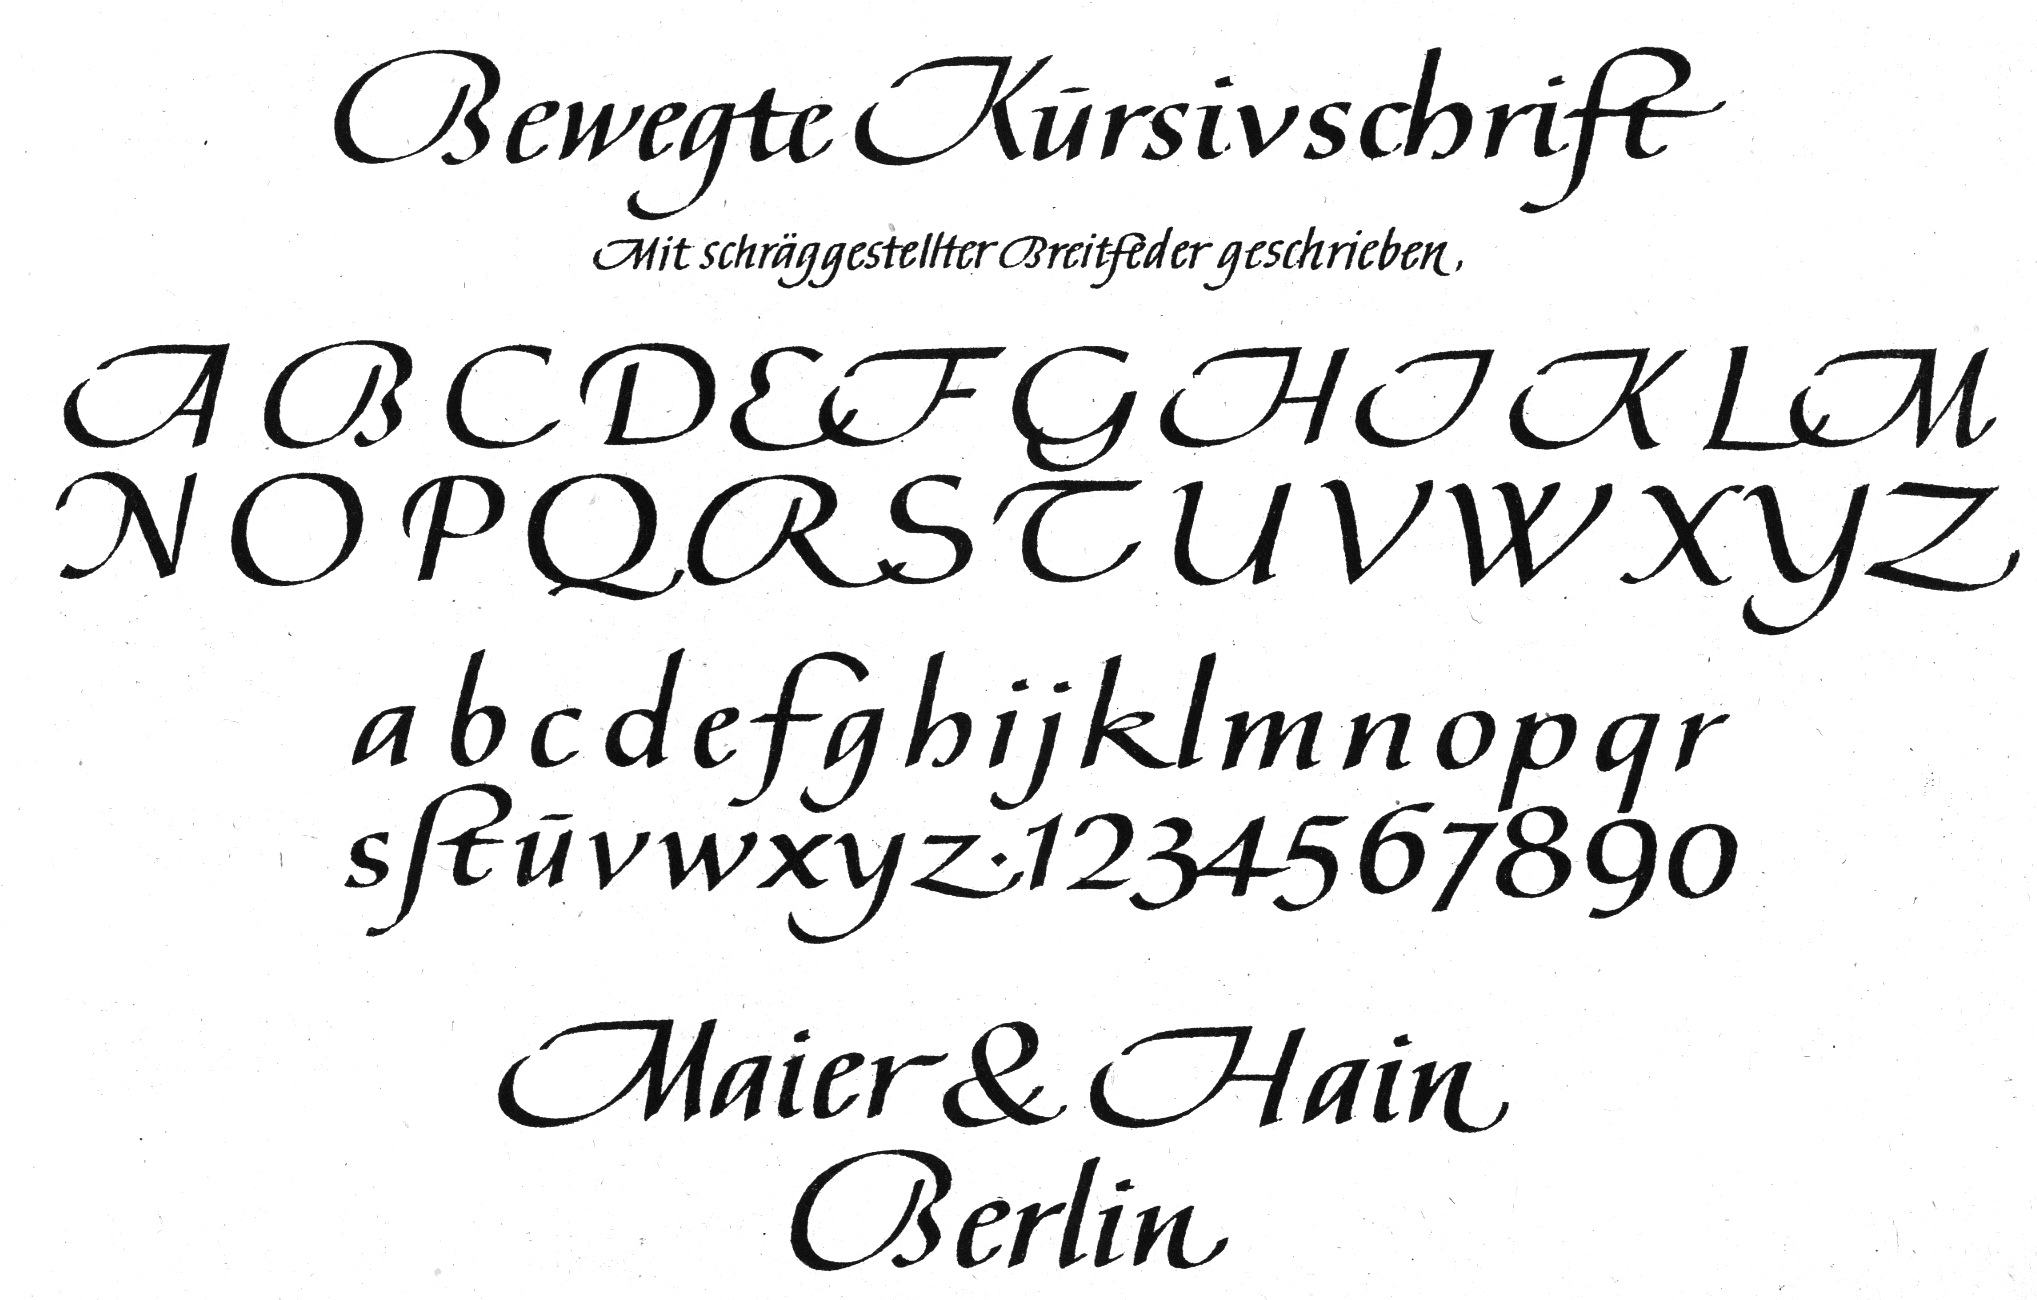 Bewegte Kūrsivschrift
Mit schräggestellter Breitfeder geschrieben.
A B C D E F G H I K L M
N O P Q R S T U V W X Y Z
a b c d e f g h i j k l m n o p q r
s ſt ū v w x y z · 1 2 3 4 5 6 7 8 9 0
Maier & Hain
Berlin